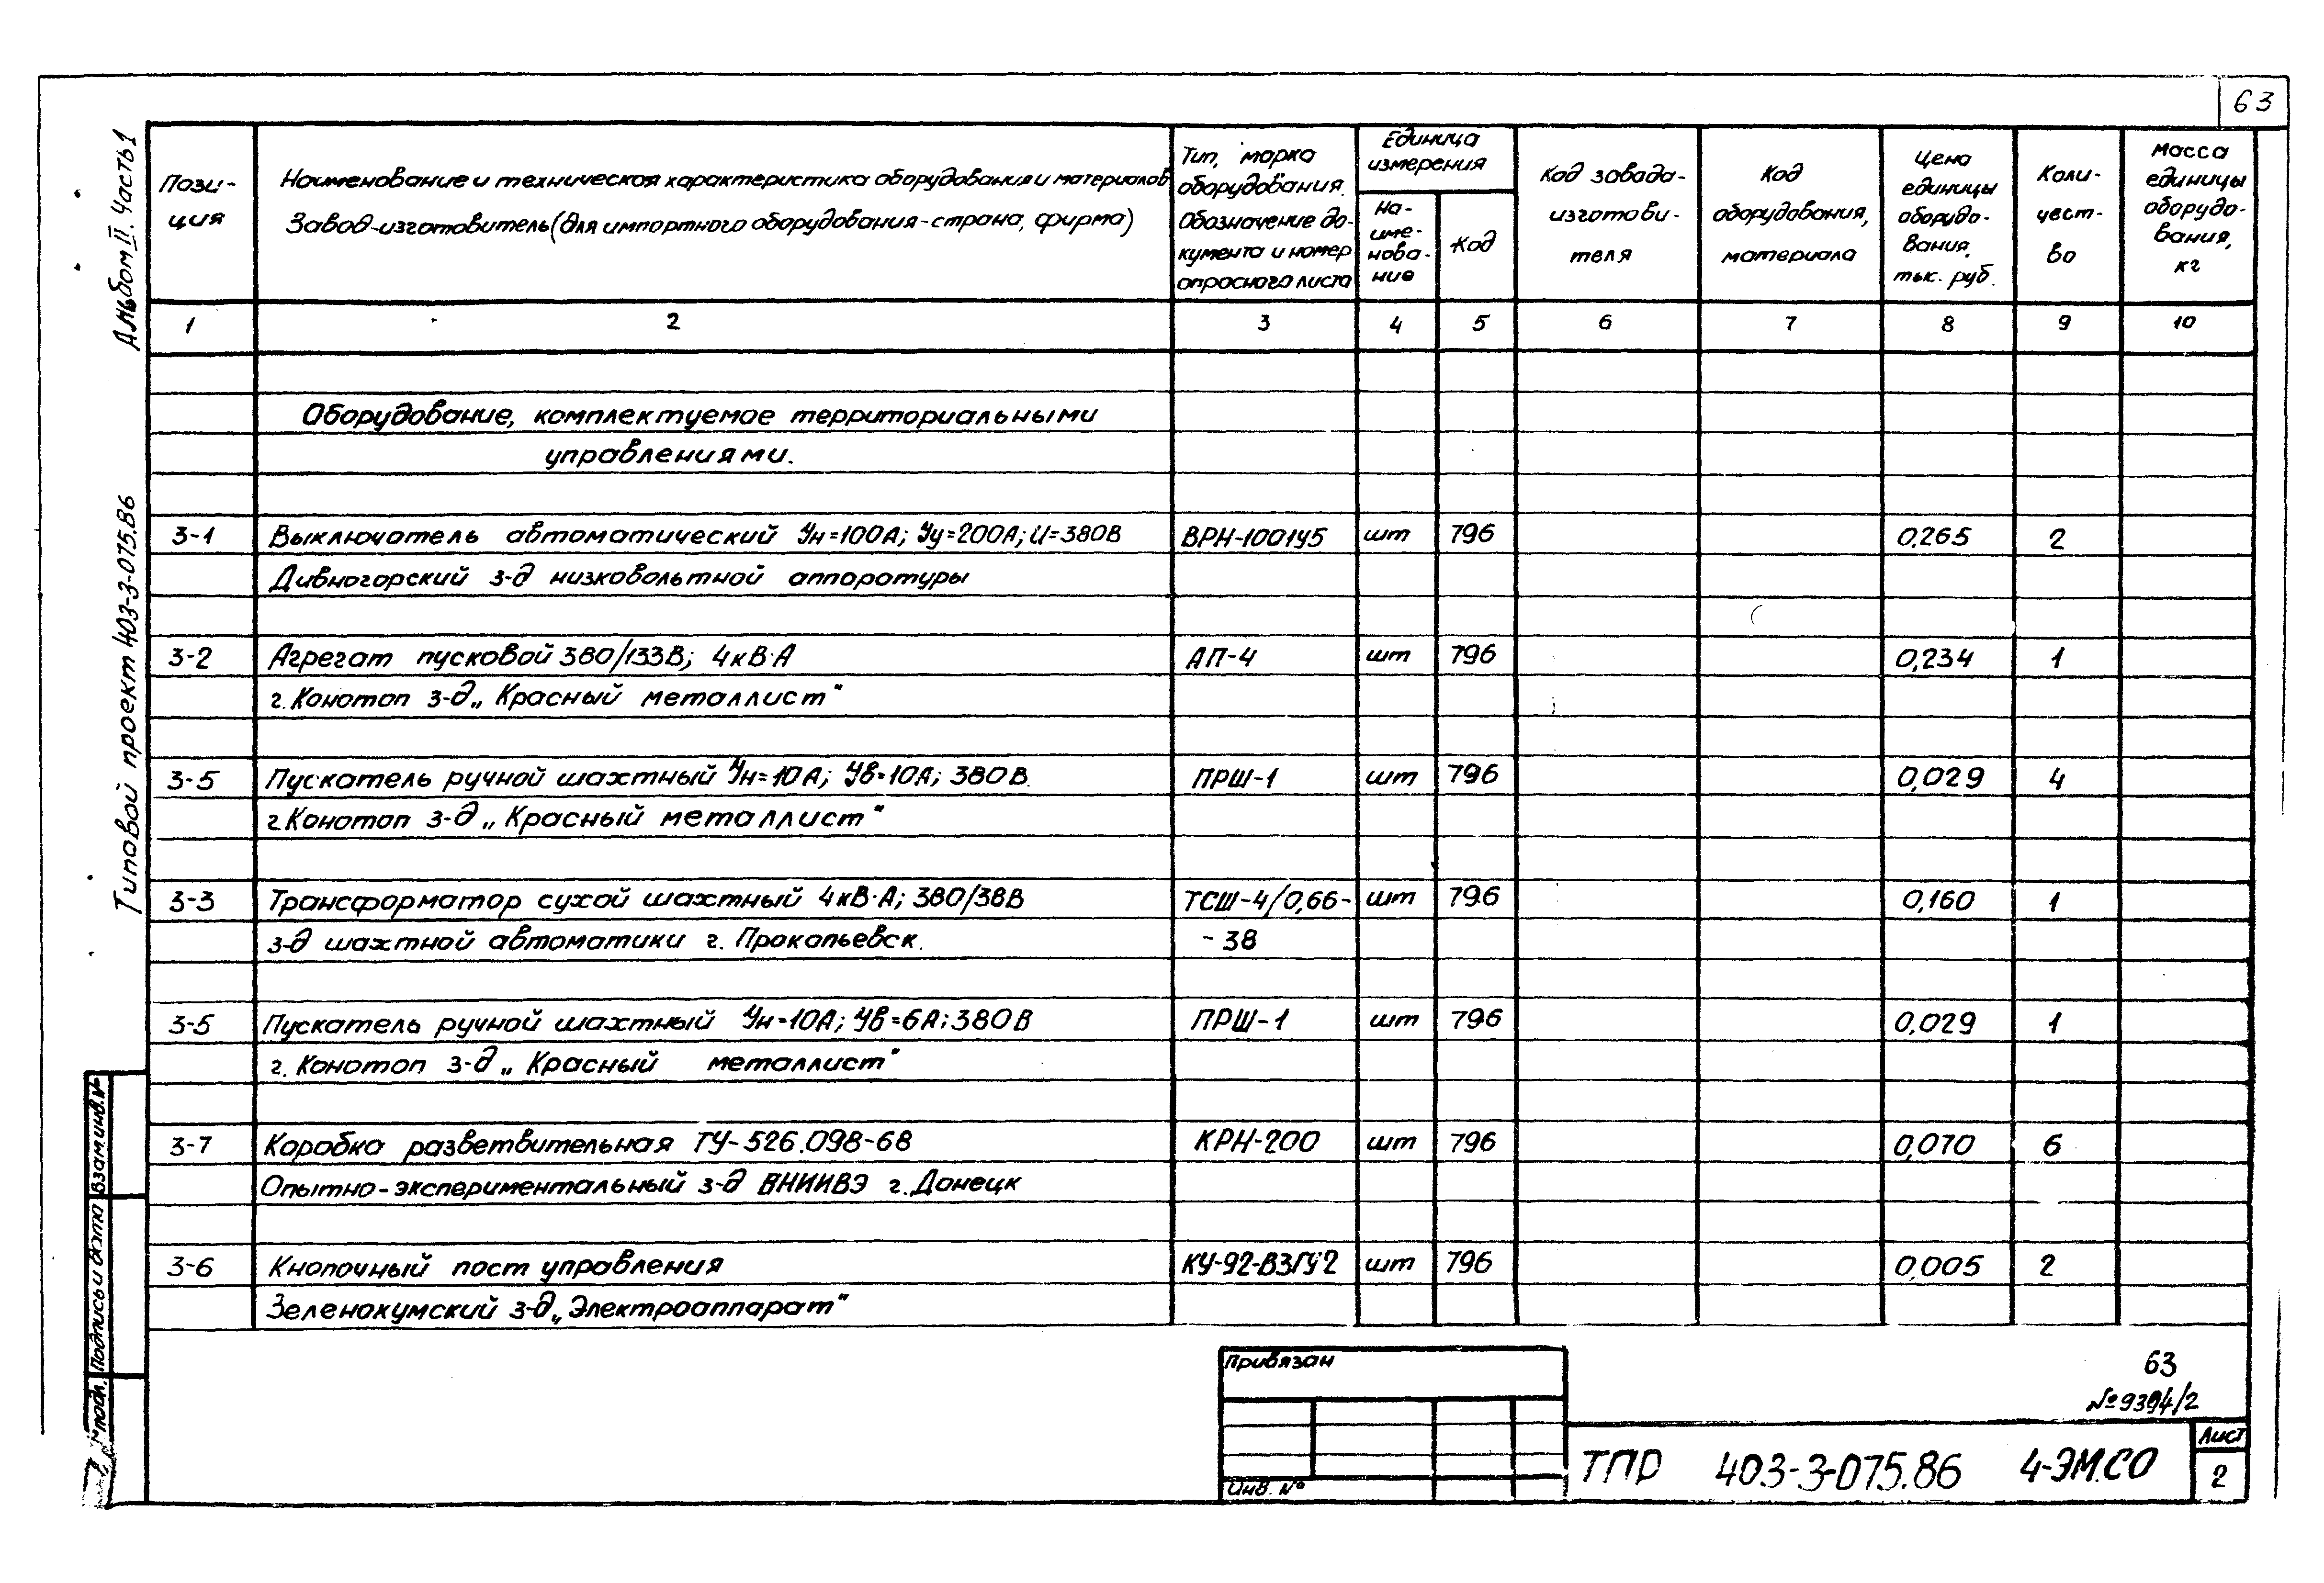 63
Альбом II. Часть 1
Типовой проект 403-3-075.86
Пози-
ция
Наименование и техническая характеристика оборудования и материалов
Завод-изготовитель (для импортного оборудования-страна, фирма)
Тип, марка
оборудования.
Обозначение до-
кумента и номер
опросного листа
Единица
измерения
На-
име-
нова-
ние
Код
Код завода-
изготови-
теля
Код
оборудования,
материала
Цена
единицы
оборудо-
вания,
тыс. руб.
Коли-
чест-
во
Масса
единицы
оборудо-
вания,
кг
1 2 3 4 5 6 7 8 9 10
Оборудование, комплектуемое территориальными
управлениями.
3-1 Выключатель автоматический Ун=100А; Уу=200А; U=380В ВРН-1001У5 шт 796 0,265 2
Дивногорский з-д низковольтной аппаратуры
3-2 Агрегат пусковой 380/133В; 4кВ·А АП-4 шт 796 0,234 1
г. Конотоп з-д „Красный металлист"
3-5 Пускатель ручной шахтный Ун=10А; Ув=10А; 380В. ПРШ-1 шт 796 0,029 4
г.Конотоп з-д „Красный металлист"
3-3 Трансформатор сухой шахтный 4кВ·А; 380/38В ТСШ-4/0,66- шт 796 0,160 1
з-д шахтной автоматики г. Прокопьевск. -38
3-5 Пускатель ручной шахтный Ун=10А; Ув=6А; 380В ПРШ-1 шт 796 0,029 1
г. Конотоп з-д „Красный металлист"
3-7 Коробка разветвительная ТУ-526.098-68 КРН-200 шт 796 0,070 6
Опытно-экспериментальный з-д ВНИИВЭ г. Донецк
3-6 Кнопочный пост управления КУ-92-ВЗГУ2 шт 796 0,005 2
Зеленокумский з-д „Электроаппарат"
Взам.инв.№
Подпись и дата
подл.
Привязан
Инв. №
63
№9394/2
ТПР 403-3-075.86 4-ЭМ.СО
Лист
2